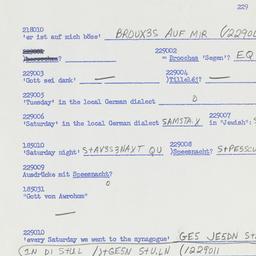 229
218010
'er ist auf mich böse' BROUX3S AUF MIR (/2290
229002
= Broochas 'Segen'? EQ
229003 229004
'Gott sei dank' — )Tilelei?
229005
'Tuesday' in the local German dialect 0
229006 229007
'Saturday' in the local German dialect SAMSTA.X in "Jewish":
185010 229008
'Saturday night' S+AV3S3NAXT QU )Speesnacht? S+PESSCU
229009
Ausdrücke mit Speesnacht?
0
185031
"Gott von Awrohom"
—
229010
'every Saturday we went to the synagogue' GES JESDN S+
(IN DI S+UL /)+GESN S+U.LN (/229011